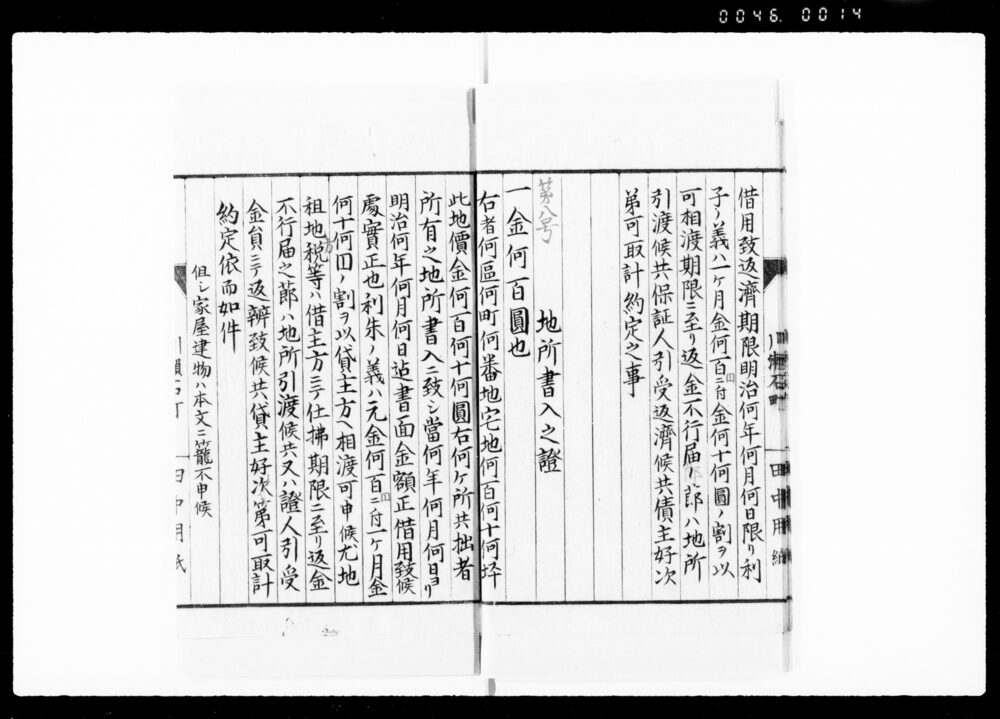 0046. 0014
借用致返濟期限明治何年何月何日限リ利
子ノ義ハ一ケ月金何百円ニ付金何十何圓ノ割ヲ以
可相渡期限ニ至リ返金不行届ノ節ハ地所
引渡候共保証人引受返濟候共債主好次
第可取計約定之事
第八号
地所書入之證
一金何百圓也
右者何區何町何番地宅地何百何十何坪
此地價金何百何十何圓右何ケ所共拙者
所有之地所書入ニ致シ當何年何月何日ヨリ
明治何年何月何日迠書面金額正借用致候
處實正也利朱ノ義ハ元金何百円ニ付一ケ月金
何十何円ノ割ヲ以貸主方ヘ相渡可申候尤地
祖地方税等ハ借主方ニテ仕拂期限ニ至リ返金
不行届之節ハ地所引渡候共又ハ證人引受
金員ニテ返辨致候共貸主好次第可取計
約定依而如件
但シ家屋建物ハ本文ニ籠不申候
田中用紙